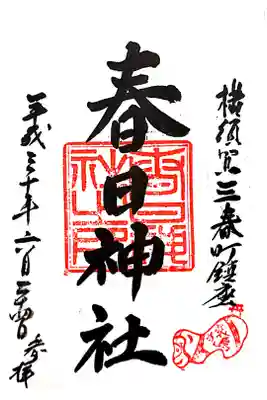 横須賀三春町鎮座
春日神社
平成三十年六月二十四日 参拝